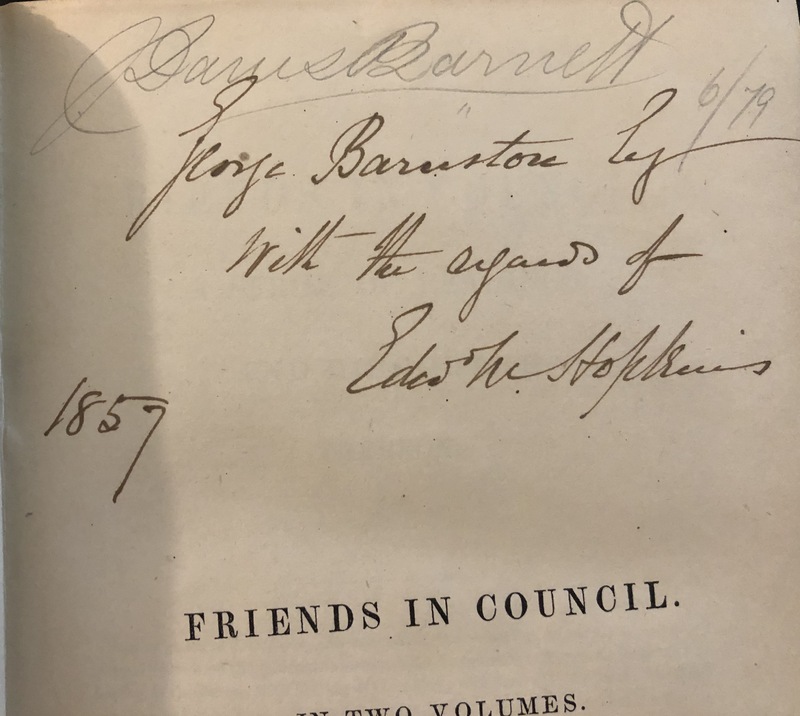 Davis Barnett
6/79
George Barnston Esq
With the regards of
Edwd M. Hopkins
1857
FRIENDS IN COUNCIL.
IN TWO VOLUMES.